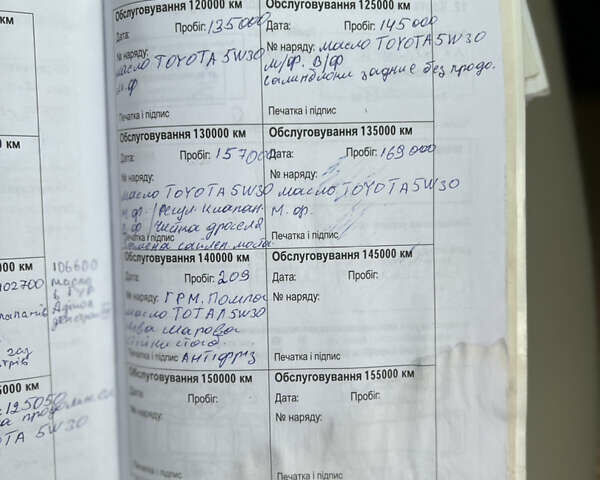 км
км
000 км
102700
106600
масло
5000 км
125050
5W30
Обслуговування 120000 км
Дата:
Пробіг: 135000
№ наряду:
масло TOYOTA 5W30
м.ф
Печатка і підпис
Обслуговування 125000 км
Дата:
Пробіг: 145000
№ наряду: масло TOYOTA 5W30
м/ф. В/ф
задние без продо.
Печатка і підпис
Обслуговування 130000 км
Дата:
Пробіг: 157000
№ наряду:
масло TOYOTA 5W30
м.ф. / Регул. клапан.
В.ф / Чистка дросела
Печатка і підпис
Обслуговування 135000 км
Дата:
Пробіг: 169000
№ наряду:
масло TOYOTA 5W30
м.ф.
Печатка і підпис
Обслуговування 140000 км
Дата:
Пробіг: 209
№ наряду: ГРМ. Помпа
масло TOTAL 5W30
Печатка і підпис АНТІФРІЗ
Обслуговування 145000 км
Дата:
Пробіг:
№ наряду:
Печатка і підпис
Обслуговування 150000 км
Дата:
Пробіг:
№ наряду:
Печатка і підпис
Обслуговування 155000 км
Дата:
Пробіг:
№ наряду:
Печатка і підпис